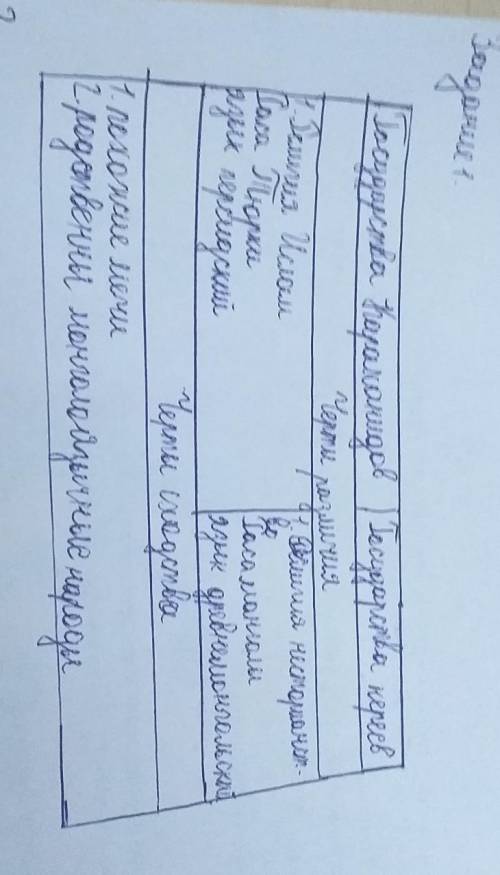 Задание 1.
Государства Караханидов Государства кереев
Черты различия
1. Религия Ислам
Раса Тюрки
язык персидский
1. Религия несторианст-
во
Раса монголы
язык древнемонгольский
Черты сходства
1. похожие мечи
2. родственны монголоязычные народы
2